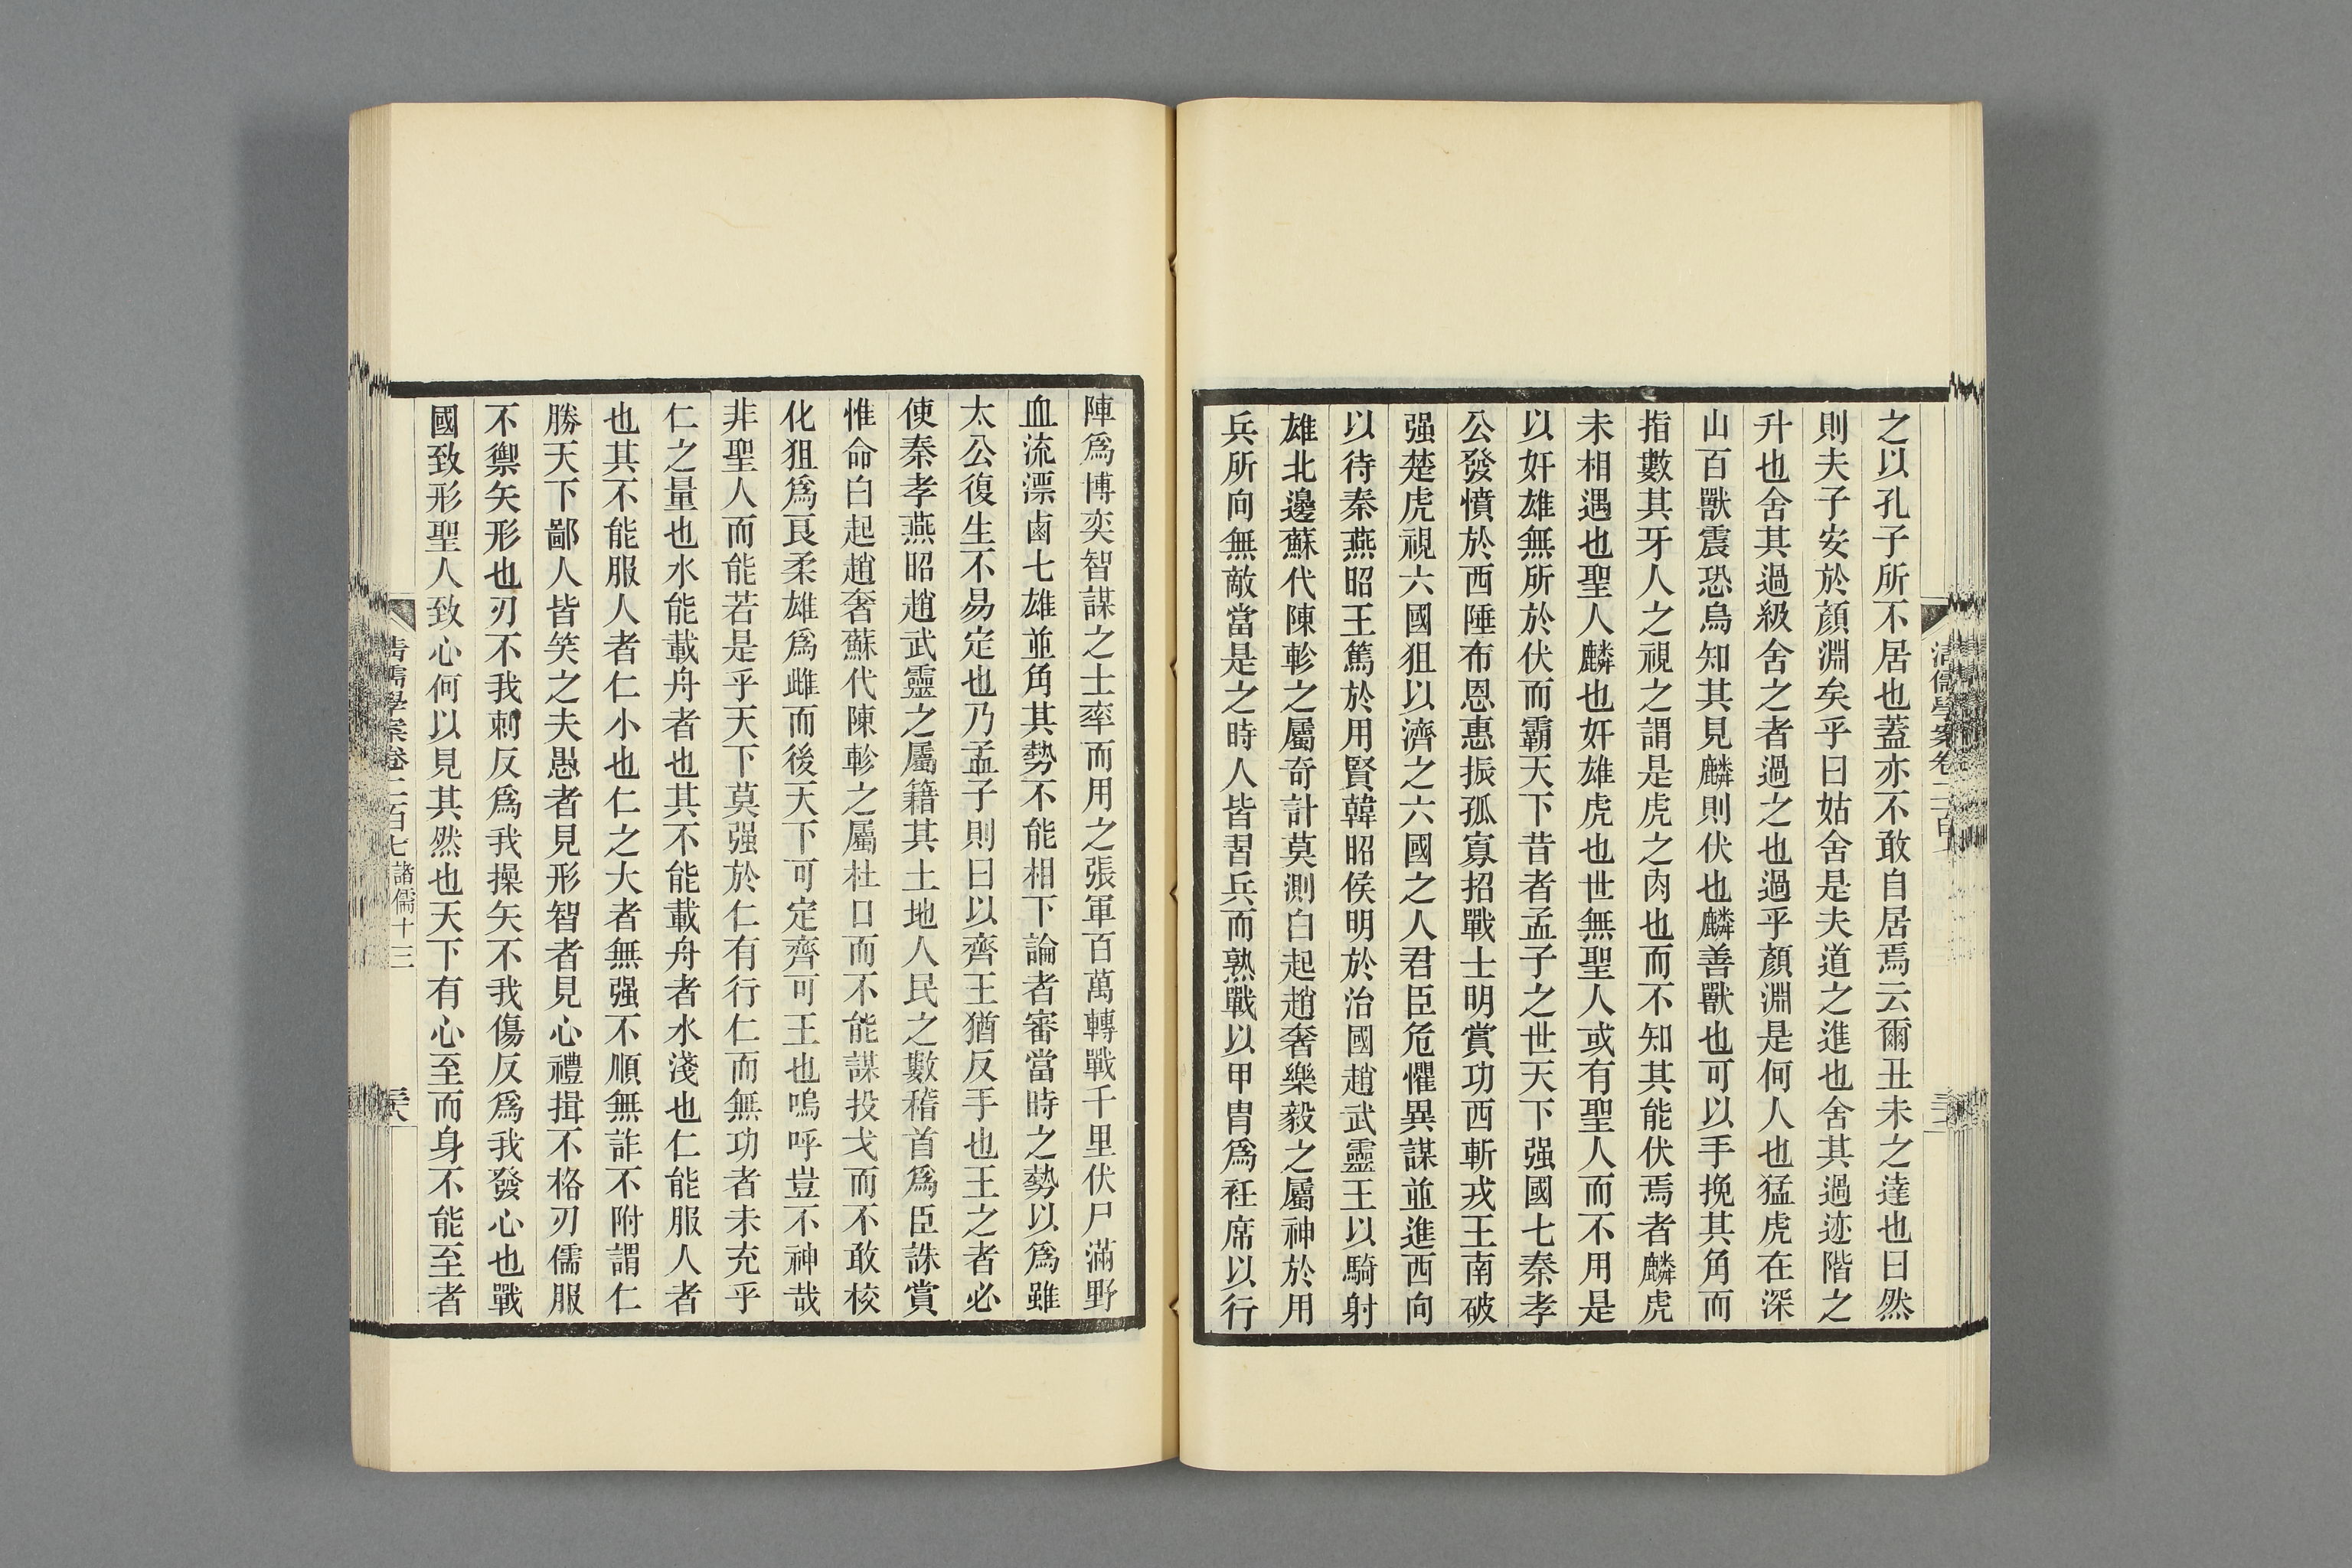 之以孔子所不居也蓋亦不敢自居焉云爾丑未之達也曰然
則夫子安於顏淵矣乎曰姑舍是夫道之進也舍其過迹階之
升也舍其過級舍之者過之也過乎顏淵是何人也猛虎在深
山百獸震恐烏知其見麟則伏也麟善獸也可以手挽其角而
指數其牙人之視之謂是虎之肉也而不知其能伏焉者麟虎
未相遇也聖人麟也奸雄虎也世無聖人或有聖人而不用是
以奸雄無所於伏而霸天下昔者孟子之世天下强國七秦孝
公發憤於西陲布恩惠振孤寡招戰士明賞功西斬戎王南破
强楚虎視六國狙以濟之六國之人君臣危懼異謀並進西向
以待秦燕昭王篤於用賢韓昭侯明於治國趙武靈王以騎射
雄北邊蘇代陳軫之屬奇計莫測白起趙奢樂毅之屬神於用
兵所向無敵當是之時人皆習兵而熟戰以甲冑爲衽席以行
陣爲博奕智謀之士率而用之張軍百萬轉戰千里伏尸滿野
血流漂鹵七雄並角其勢不能相下論者審當時之勢以爲雖
太公復生不易定也乃孟子則曰以齊王猶反手也王之者必
使秦孝燕昭趙武靈之屬籍其土地人民之數稽首爲臣誅賞
惟命白起趙奢蘇代陳軫之屬杜口而不能謀投戈而不敢校
化狙爲良柔雄爲雌而後天下可定齊可王也嗚呼豈不神哉
非聖人而能若是乎天下莫强於仁有行仁而無功者未充乎
仁之量也水能載舟者也其不能載舟者水淺也仁能服人者
也其不能服人者仁小也仁之大者無强不順無詐不附謂仁
勝天下鄙人皆笑之夫愚者見形智者見心禮揖不格刃儒服
不禦矢形也刃不我刺反爲我操矢不我傷反爲我發心也戰
國致形聖人致心何以見其然也天下有心至而身不能至者
清儒學案卷二百七 諸儒十三